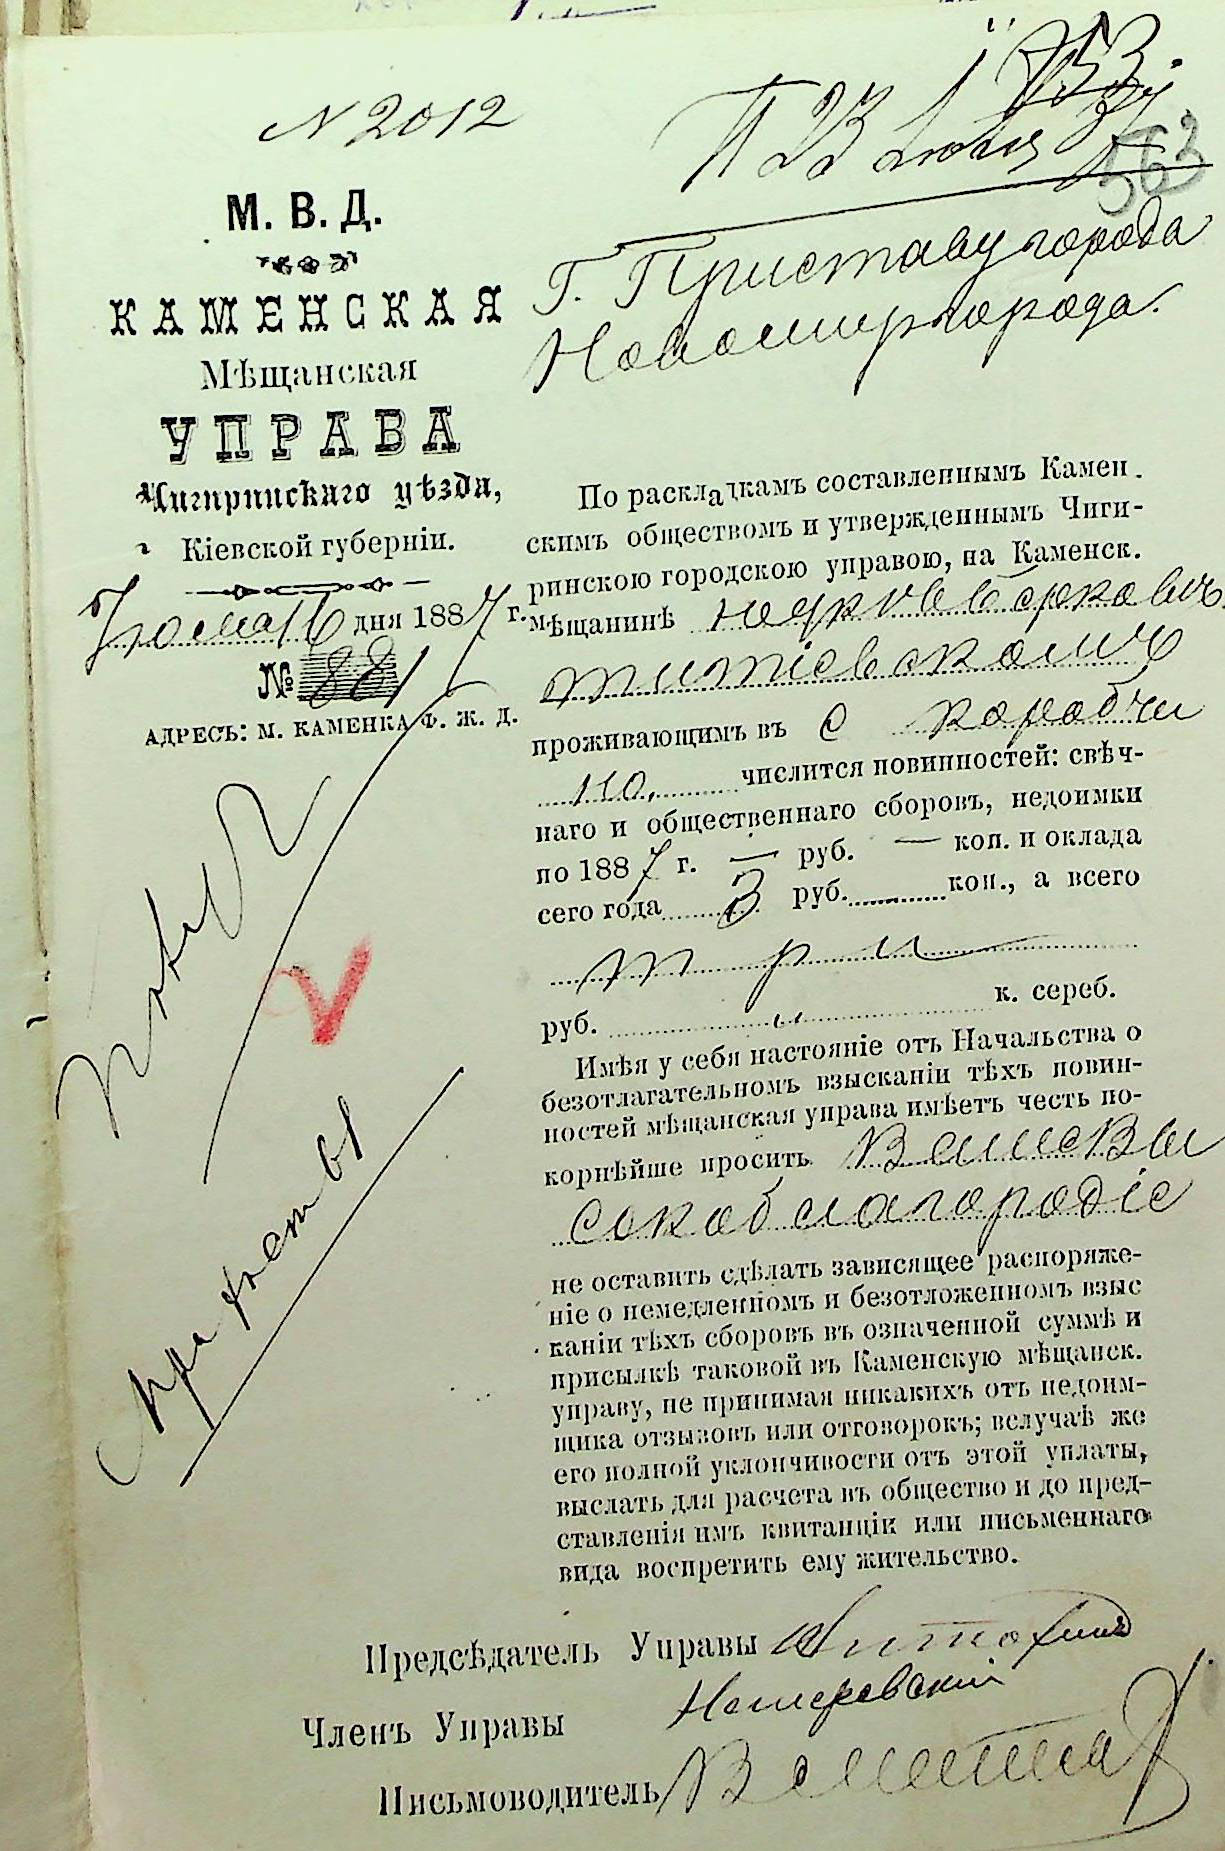 N 2012
753.
П 23 Июля 87
563
М. В. Д.
КАМЕНСКАЯ
Мѣщанская
УПРАВА
Чигиринскаго уѣзда,
Кіевской губерніи.
Іюля 16 дня 1887 г.
№ 881
АДРЕСЪ: М. КАМЕНКА Ф. Ж. Д.
Г. Приставу города
Новомиргорода.
По раскладкамъ составленнымъ Камен.
скимъ обществомъ и утвержденнымъ Чиги-
ринскою городскою управою, на Каменск.
мѣщанинѣ Берковичъ
Титіевскомъ
проживающимъ въ с Коробчи
но, числится повинностей: свѣч-
наго и общественнаго сборовъ, недоимки
по 1887 г. — руб. — коп. и оклада
сего года 3 руб. коп., а всего
три
руб. " к. сереб.
Имѣя у себя настояніе отъ Начальства о
безотлагательномъ взысканіи тѣхъ повин-
ностей мѣщанская управа имѣетъ честь по-
корнѣйше проситъ Ваше Вы
сокоблагородіе
не оставить сдѣлать зависящее распоряже-
ніе о немедленномъ и безотложенномъ взыс
каніи тѣхъ сборовъ въ означенной суммѣ и
присылкѣ таковой въ Каменскую мѣщанск.
управу, не принимая никакихъ отъ недоим-
щика отзывовъ или отговорокъ; вслучаѣ же
его полной уклончивости отъ этой уплаты,
выслать для расчета въ общество и до пред-
ставленія имъ квитанціи или письменнаго
вида воспретить ему жительство.
Предсѣдатель Управы
Членъ Управы
Письмоводитель